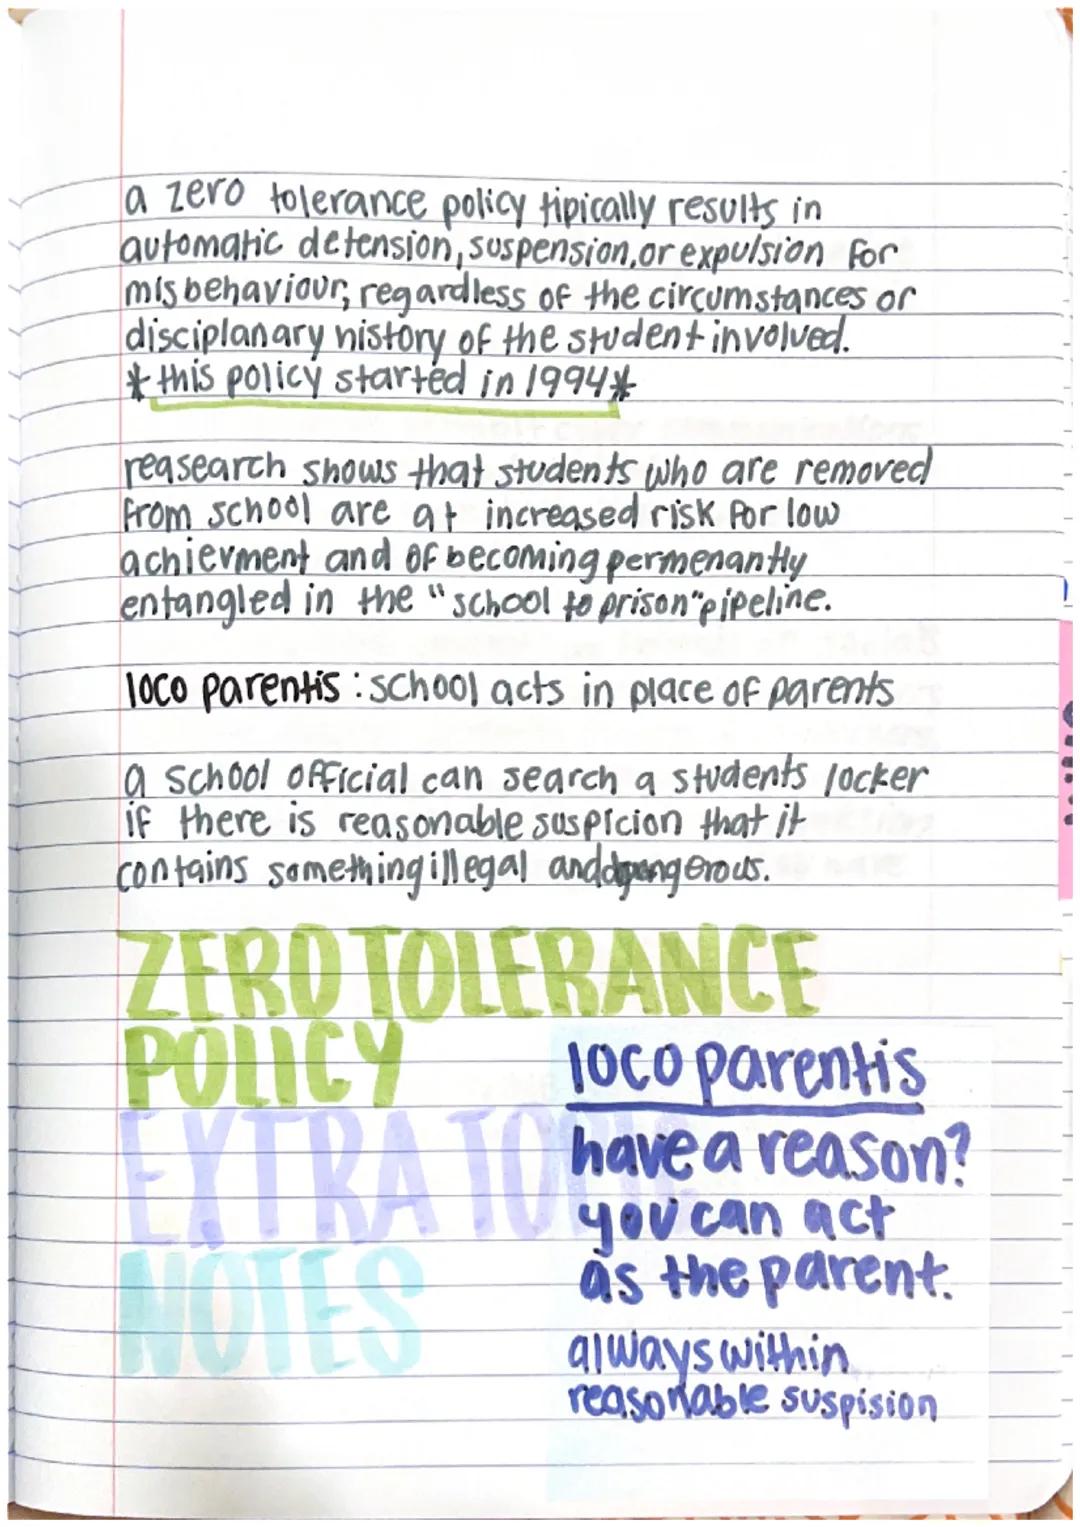 a zero tolerance policy tipically results in
automatic detension, suspension, or expulsion for
misbehaviour, regardless of the circumstances or
disciplanary history of the student involved.
* this policy started in 1994 *
reasearch shows that students who are removed
from school are at increased risk for low
achievment and of becoming permenantly
entangled in the "school to prison" pipeline.
loco parentis : school acts in place of parents
a school official can search a students locker
if there is reasonable suspicion that it
contains something illegal and dangerous.
ZERO TOLERANCE
POLICY
EXTRA TOPIC
NOTES
loco parentis
have a reason?
you can act
as the parent.
always within
reasonable suspision